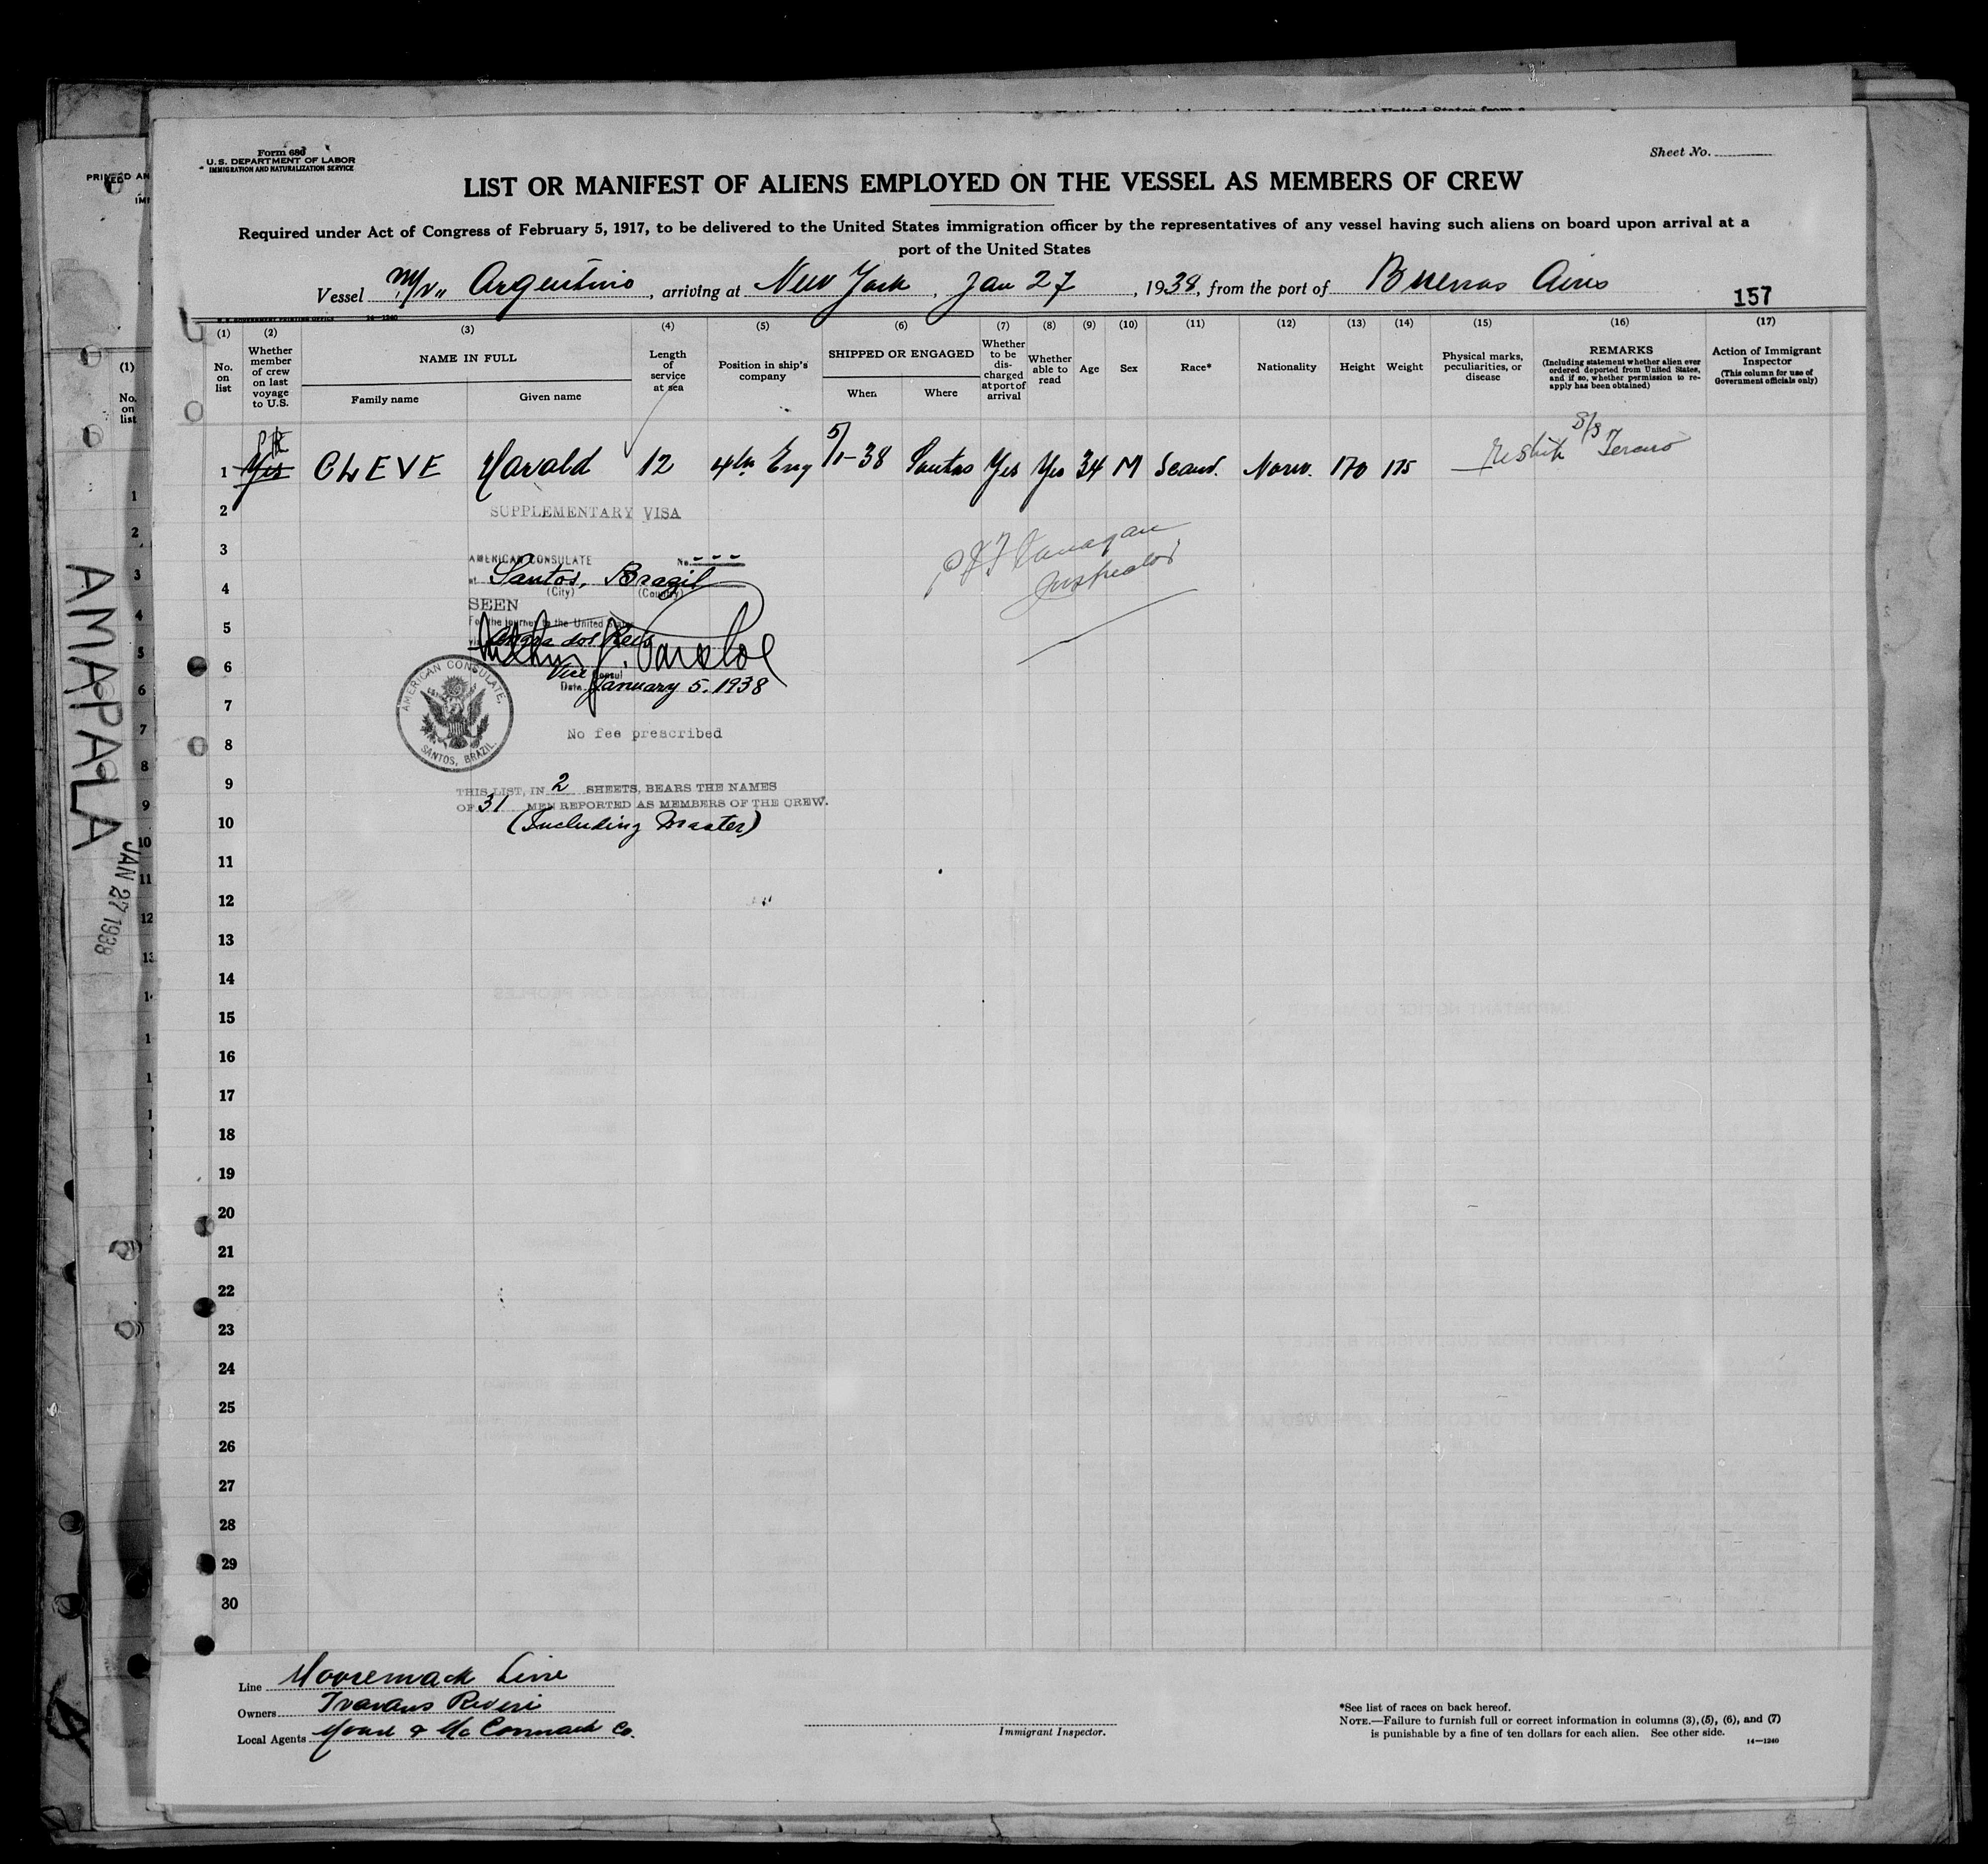 Form 680
U.S. DEPARTMENT OF LABOR
IMMIGRATION AND NATURALIZATION SERVICE
Sheet No.
LIST OR MANIFEST OF ALIENS EMPLOYED ON THE VESSEL AS MEMBERS OF CREW
Required under Act of Congress of February 5, 1917, to be delivered to the United States immigration officer by the representatives of any vessel having such aliens on board upon arrival at a
port of the United States
Vessel M/V „ Argentino, arriving at New York, Jan 27, 1938, from the port of Buenos Aires
157
(1) (2) (3) (4) (5) (6) (7) (8) (9) (10) (11) (12) (13) (14) (15) (16) (17)
No. on list
Whether member of crew on last voyage to U.S.
NAME IN FULL
Family name
Given name
Length of service at sea
Position in ship's company
SHIPPED OR ENGAGED
When
Where
Whether to be discharged at port of arrival
Whether able to read
Age
Sex
Race*
Nationality
Height
Weight
Physical marks, peculiarities, or disease
REMARKS
(Including statement whether alien ever ordered deported from United States, and if so, whether permission to reapply has been obtained)
Action of Immigrant Inspector
(This column for use of Government officials only)
1 Yes CLEVE Harald 12 4th Eng 5/1-38 Santos Yes Yes 34 M Scand. Norw. 170 175 Reship S/S
2
SUPPLEMENTARY VISA
3
AMERICAN CONSULATE No. ---
at Santos, Brazil
4
(City) (Country)
SEEN
For the journey to the United States
5
via Angra dos Reis
6
Vice Consul
Date January 5. 1938
Inspector
AMERICAN CONSULATE,
SANTOS, BRAZIL.
7
No fee prescribed
8
9
THIS LIST, IN 2 SHEETS, BEARS THE NAMES
OF 31 MEN REPORTED AS MEMBERS OF THE CREW.
10
(Including Master)
11
12
13
14
15
16
17
18
19
20
21
22
23
24
25
26
27
28
29
30
Line Mooremack Line
Owners
Local Agents Moore & McCormack Co.
Immigrant Inspector.
*See list of races on back hereof.
NOTE.—Failure to furnish full or correct information in columns (3), (5), (6), and (7)
is punishable by a fine of ten dollars for each alien. See other side.
14—1240
AMAPALA
JAN 27 1938